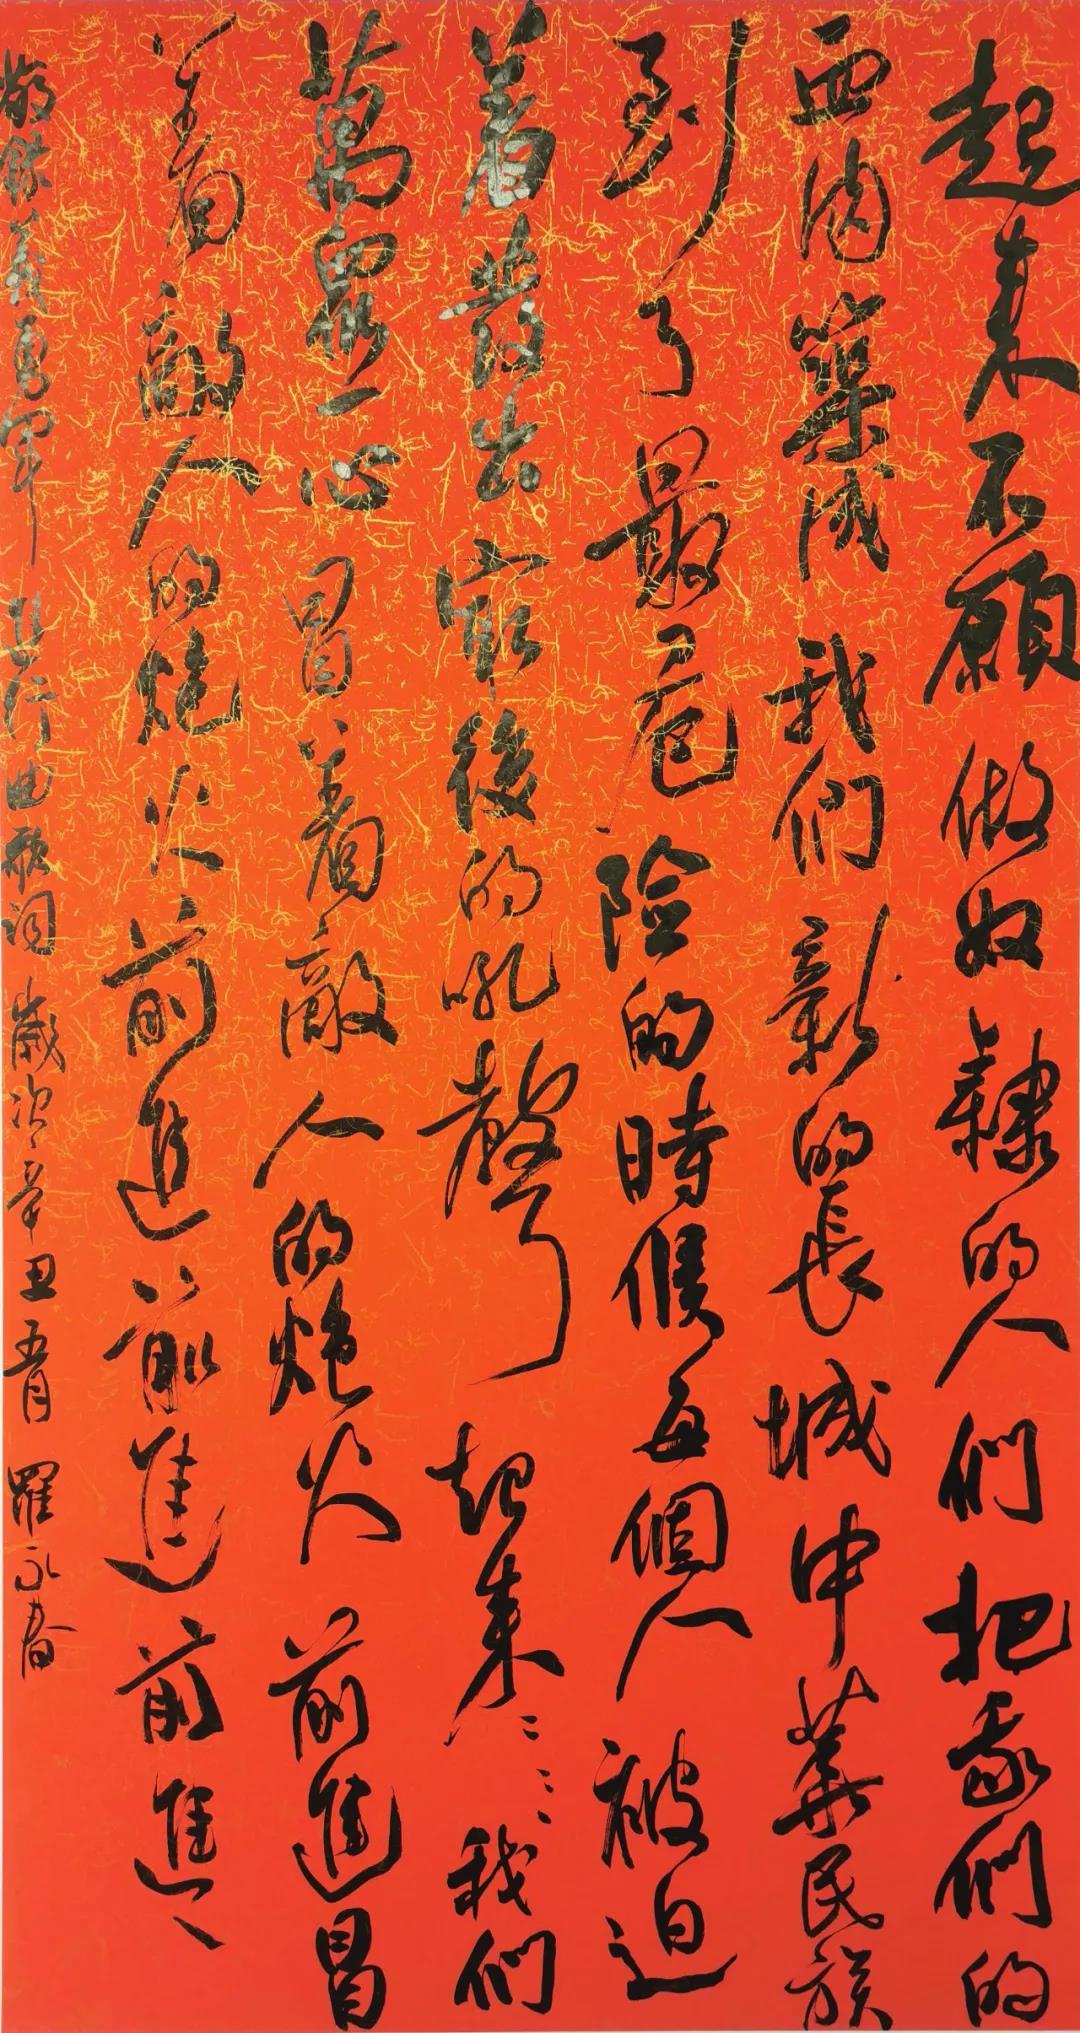 起来不願做奴隸的人們把我們的
血肉築成我們新的長城中華民族
到了最危險的時候每個人被迫
着發出最後的吼聲起來〻〻我們
萬眾一心冒着敵人的炮火前進冒
着敵人的炮火前進前進前進〻
敬錄義勇軍進行曲歌词歲次辛丑五月羅永春